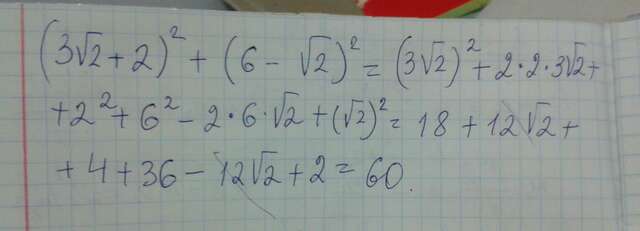 (3√2 + 2)² + (6 - √2)² = (3√2)² + 2·2·3√2 +
+ 2² + 6² - 2·6·√2 + (√2)² = 18 + 12√2 +
+ 4 + 36 - 12√2 + 2 = 60.